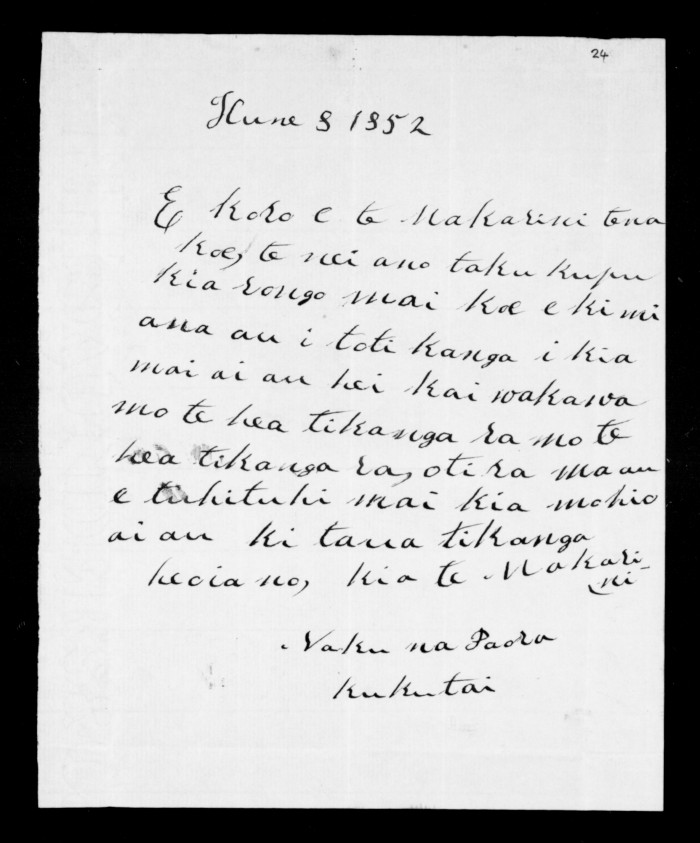 24
Hune 8 1852
E koro e te Makarini tena
koe, te nei ano taku kupu
kia rongo mai koe e kimi
ana au i toti kanga i kia
mai ai au hei kai wakawa
mo te hea tikanga ra mo te
hea tikanga ra, oti ra ma au
e tuhituhi mai kia mohio
ai au ki taua tikanga
heoia no, kia te Makari-
ni
Naku na Paora
Kukutai